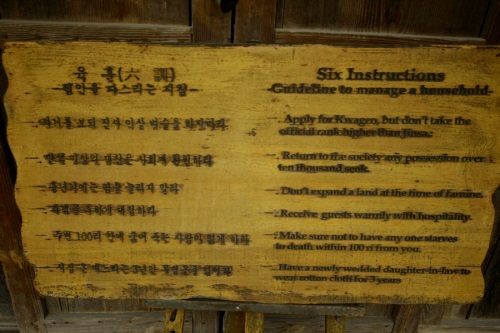 육 훈(六 訓)
-집안을 다스리는 지침-
- 과거를 보되 진사 이상 벼슬을 하지마라
- 만석 이상의 재산은 사회에 환원하라
- 흉년기에는 땅을 늘리지 말라
- 과객을 후하게 대접하라
- 주변 100리 안에 굶어 죽는 사람이 없게 하라
- 시집 온 며느리는 3년간 무명옷을 입어라
Six Instructions
-Guideline to manage a household-
- Apply for Kwageo, but don't take the
official rank higher than Jinsa.
- Return to the society any possession over
ten thousand seok.
- Don't expand a land at the time of famine.
- Receive guests warmly with hospitality.
- Make sure not to have any one starves
to death within 100 ri from you.
- Have a newly wedded daughter-in-law to
wear cotton cloth for 3 years